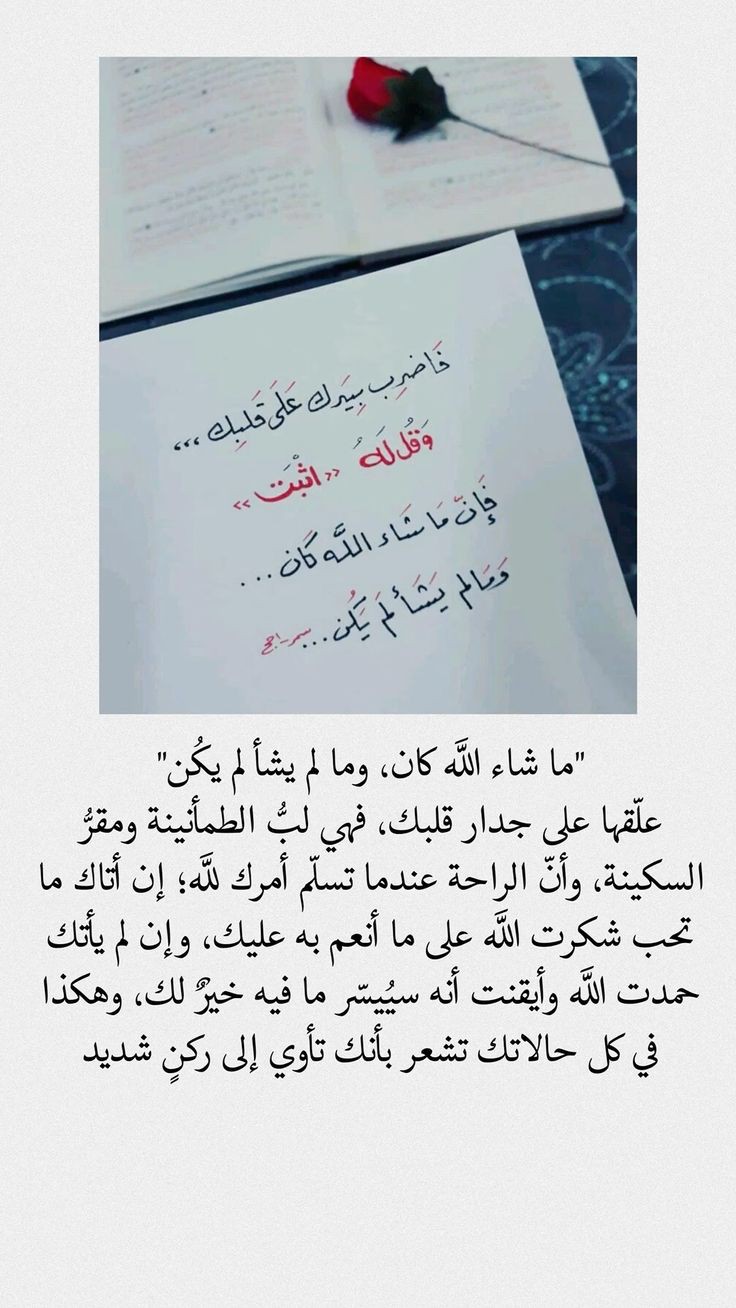 فَاضرِب بِيَدك عَلَى قَلبِك ،،،
وَقُل لَهُ «اثْبَت»
فَإنّ مَا شَاء اللَّه كَان ...
وَمَالم يَشَأ لَم يَكُن ...
"ما شاء اللَّه كان، وما لم يشأ لم يكُن"
علّقها على جدار قلبك، فهي لبُّ الطمأنينة ومقرُّ
السكينة، وأنّ الراحة عندما تسلّم أمرك للَّه؛ إن أتاك ما
تحب شكرت اللَّه على ما أنعم به عليك، وإن لم يأتك
حمدت اللَّه وأيقنت أنه سيُيسّر ما فيه خيرٌ لك، وهكذا
في كل حالاتك تشعر بأنك تأوي إلى ركنٍ شديد